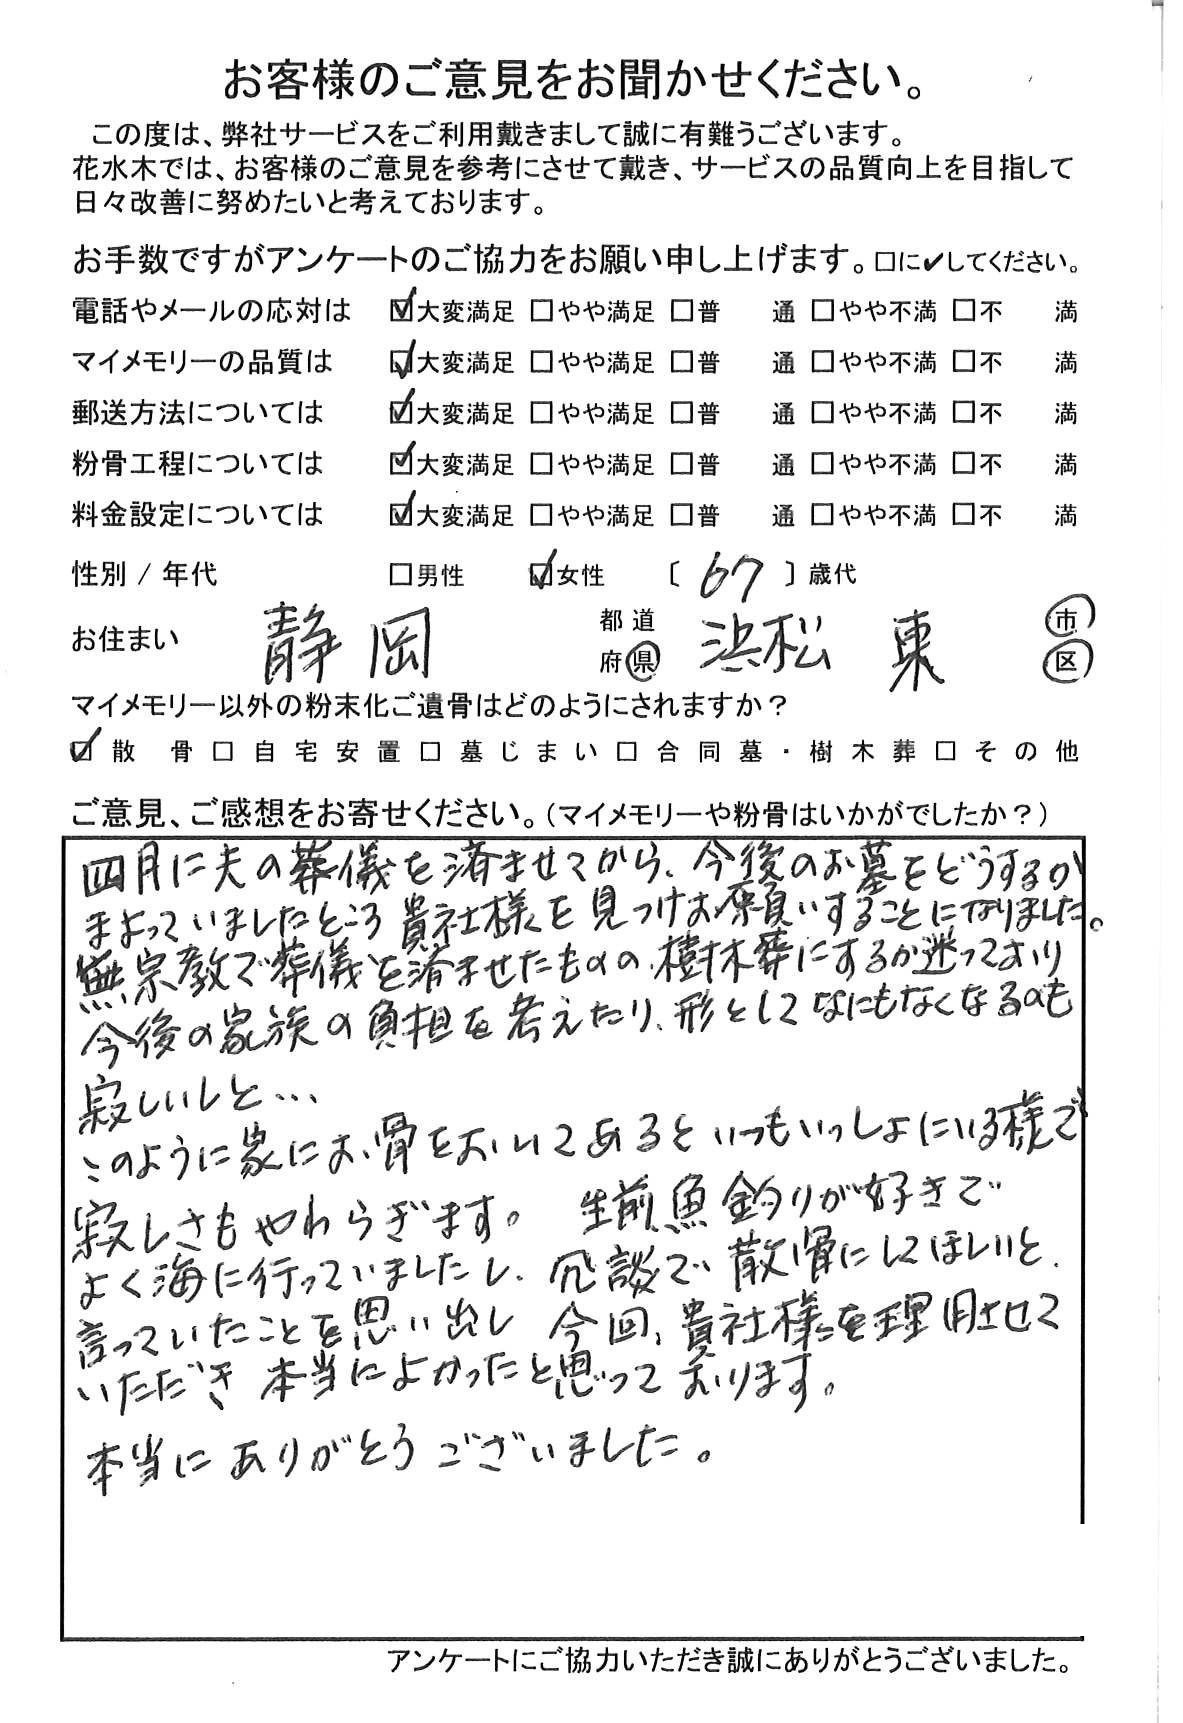 お客様のご意見をお聞かせください。
この度は、弊社サービスをご利用戴きまして誠に有難うございます。
花水木では、お客様のご意見を参考にさせて戴き、サービスの品質向上を目指して
日々改善に努めたいと考えております。
お手数ですがアンケートのご協力をお願い申し上げます。□に✔してください。
電話やメールの応対は ☑大変満足 □やや満足 □普 通 □やや不満 □不 満
マイメモリーの品質は ☑大変満足 □やや満足 □普 通 □やや不満 □不 満
郵送方法については ☑大変満足 □やや満足 □普 通 □やや不満 □不 満
粉骨工程については ☑大変満足 □やや満足 □普 通 □やや不満 □不 満
料金設定については ☑大変満足 □やや満足 □普 通 □やや不満 □不 満
性別 / 年代 □男性 ☑女性 〔 67 〕歳代
お住まい 静岡 都道府県 浜松 東 市区
マイメモリー以外の粉末化ご遺骨はどのようにされますか？
☑散 骨 □自宅安置 □墓じまい □合同墓・樹木葬 □その他
ご意見、ご感想をお寄せください。（マイメモリーや粉骨はいかがでしたか？）
四月に夫の葬儀を済ませてから、今後のお墓をどうするか
まよっていましたところ貴社様を見つけお願いすることになりました。
無宗教で葬儀を済ませたものの、樹木葬にするか迷っており
今後の家族の負担を考えたり、形としてなにもなくなるのも
寂しいしと…
このように家にお骨をおいてあるといつもいっしょにいる様で
寂しさもやわらぎます。 生前魚釣りが好きで
よく海に行っていましたし、冗談で散骨にしてほしいと、
言っていたことを思い出し 今回、貴社様を理用させて
いただき 本当によかったと思っております。
本当にありがとうございました。
アンケートにご協力いただき誠にありがとうございました。